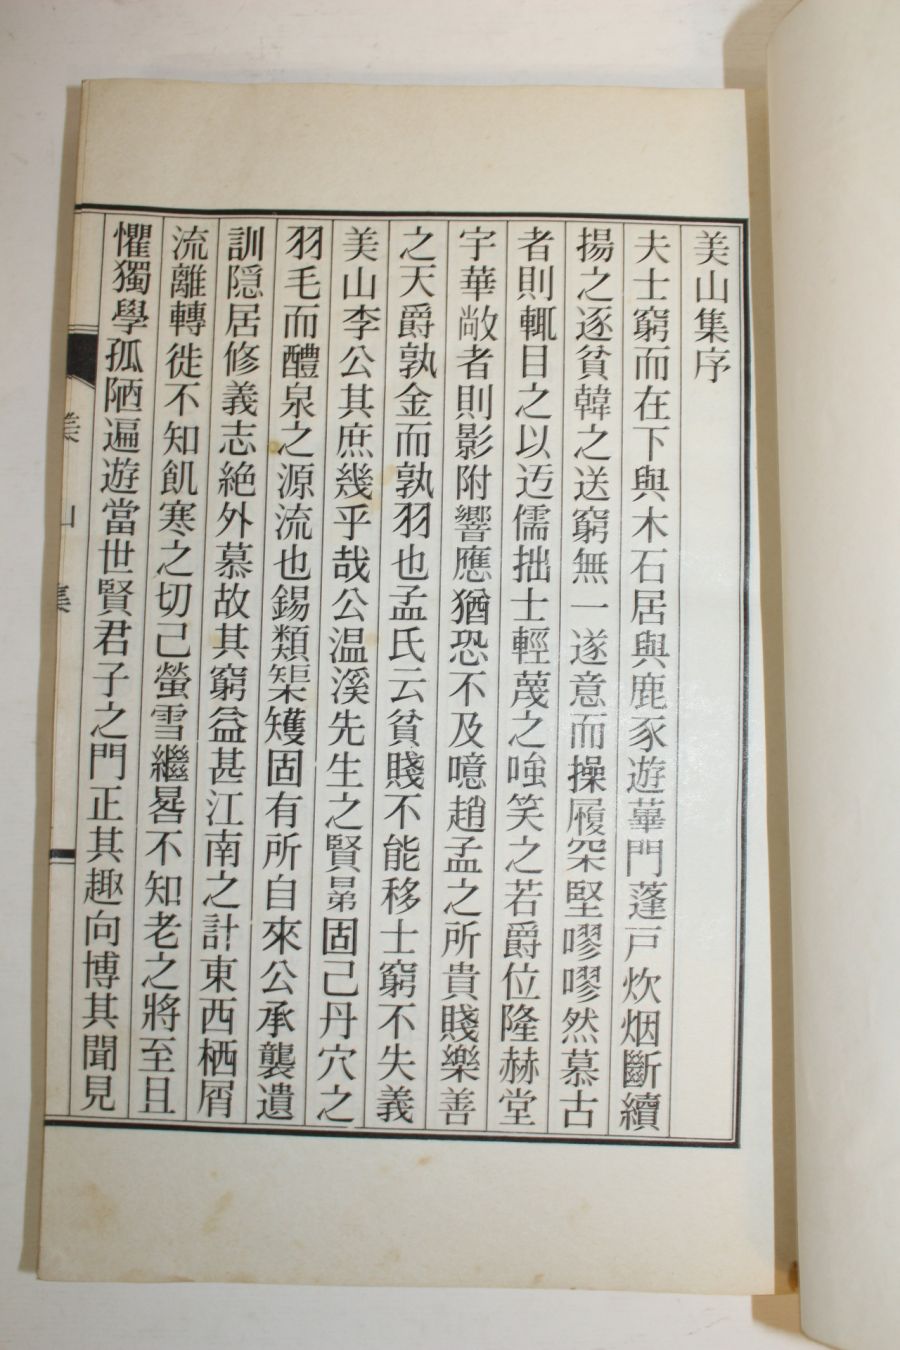 美山集序
夫士窮而在下與木石居與鹿豕遊蓽門蓬戶炊烟斷續
揚之逐貧韓之送窮無一遂意而操履罙堅嘐嘐然慕古
者則輒目之以迃儒拙士輕蔑之嗤笑之若爵位隆赫堂
宇華敞者則影附響應猶恐不及噫趙孟之所貴賤樂善
之天爵孰金而孰羽也孟氏云貧賤不能移士窮不失義
美山李公其庶幾乎哉公温溪先生之賢晜固己丹穴之
羽毛而醴泉之源流也錫類榘矱固有所自來公承襲遺
訓隠居修義志絶外慕故其窮益甚江南之計東西栖屑
流離轉徙不知飢寒之切己螢雪繼晷不知老之將至且
懼獨學孤陋遍遊當世賢君子之門正其趣向博其聞見
美山集